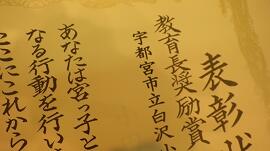 表彰状
教育長奨励賞
宇都宮市立白沢小
あなたは宮っ子と
なる行動を行い
ここにこれから